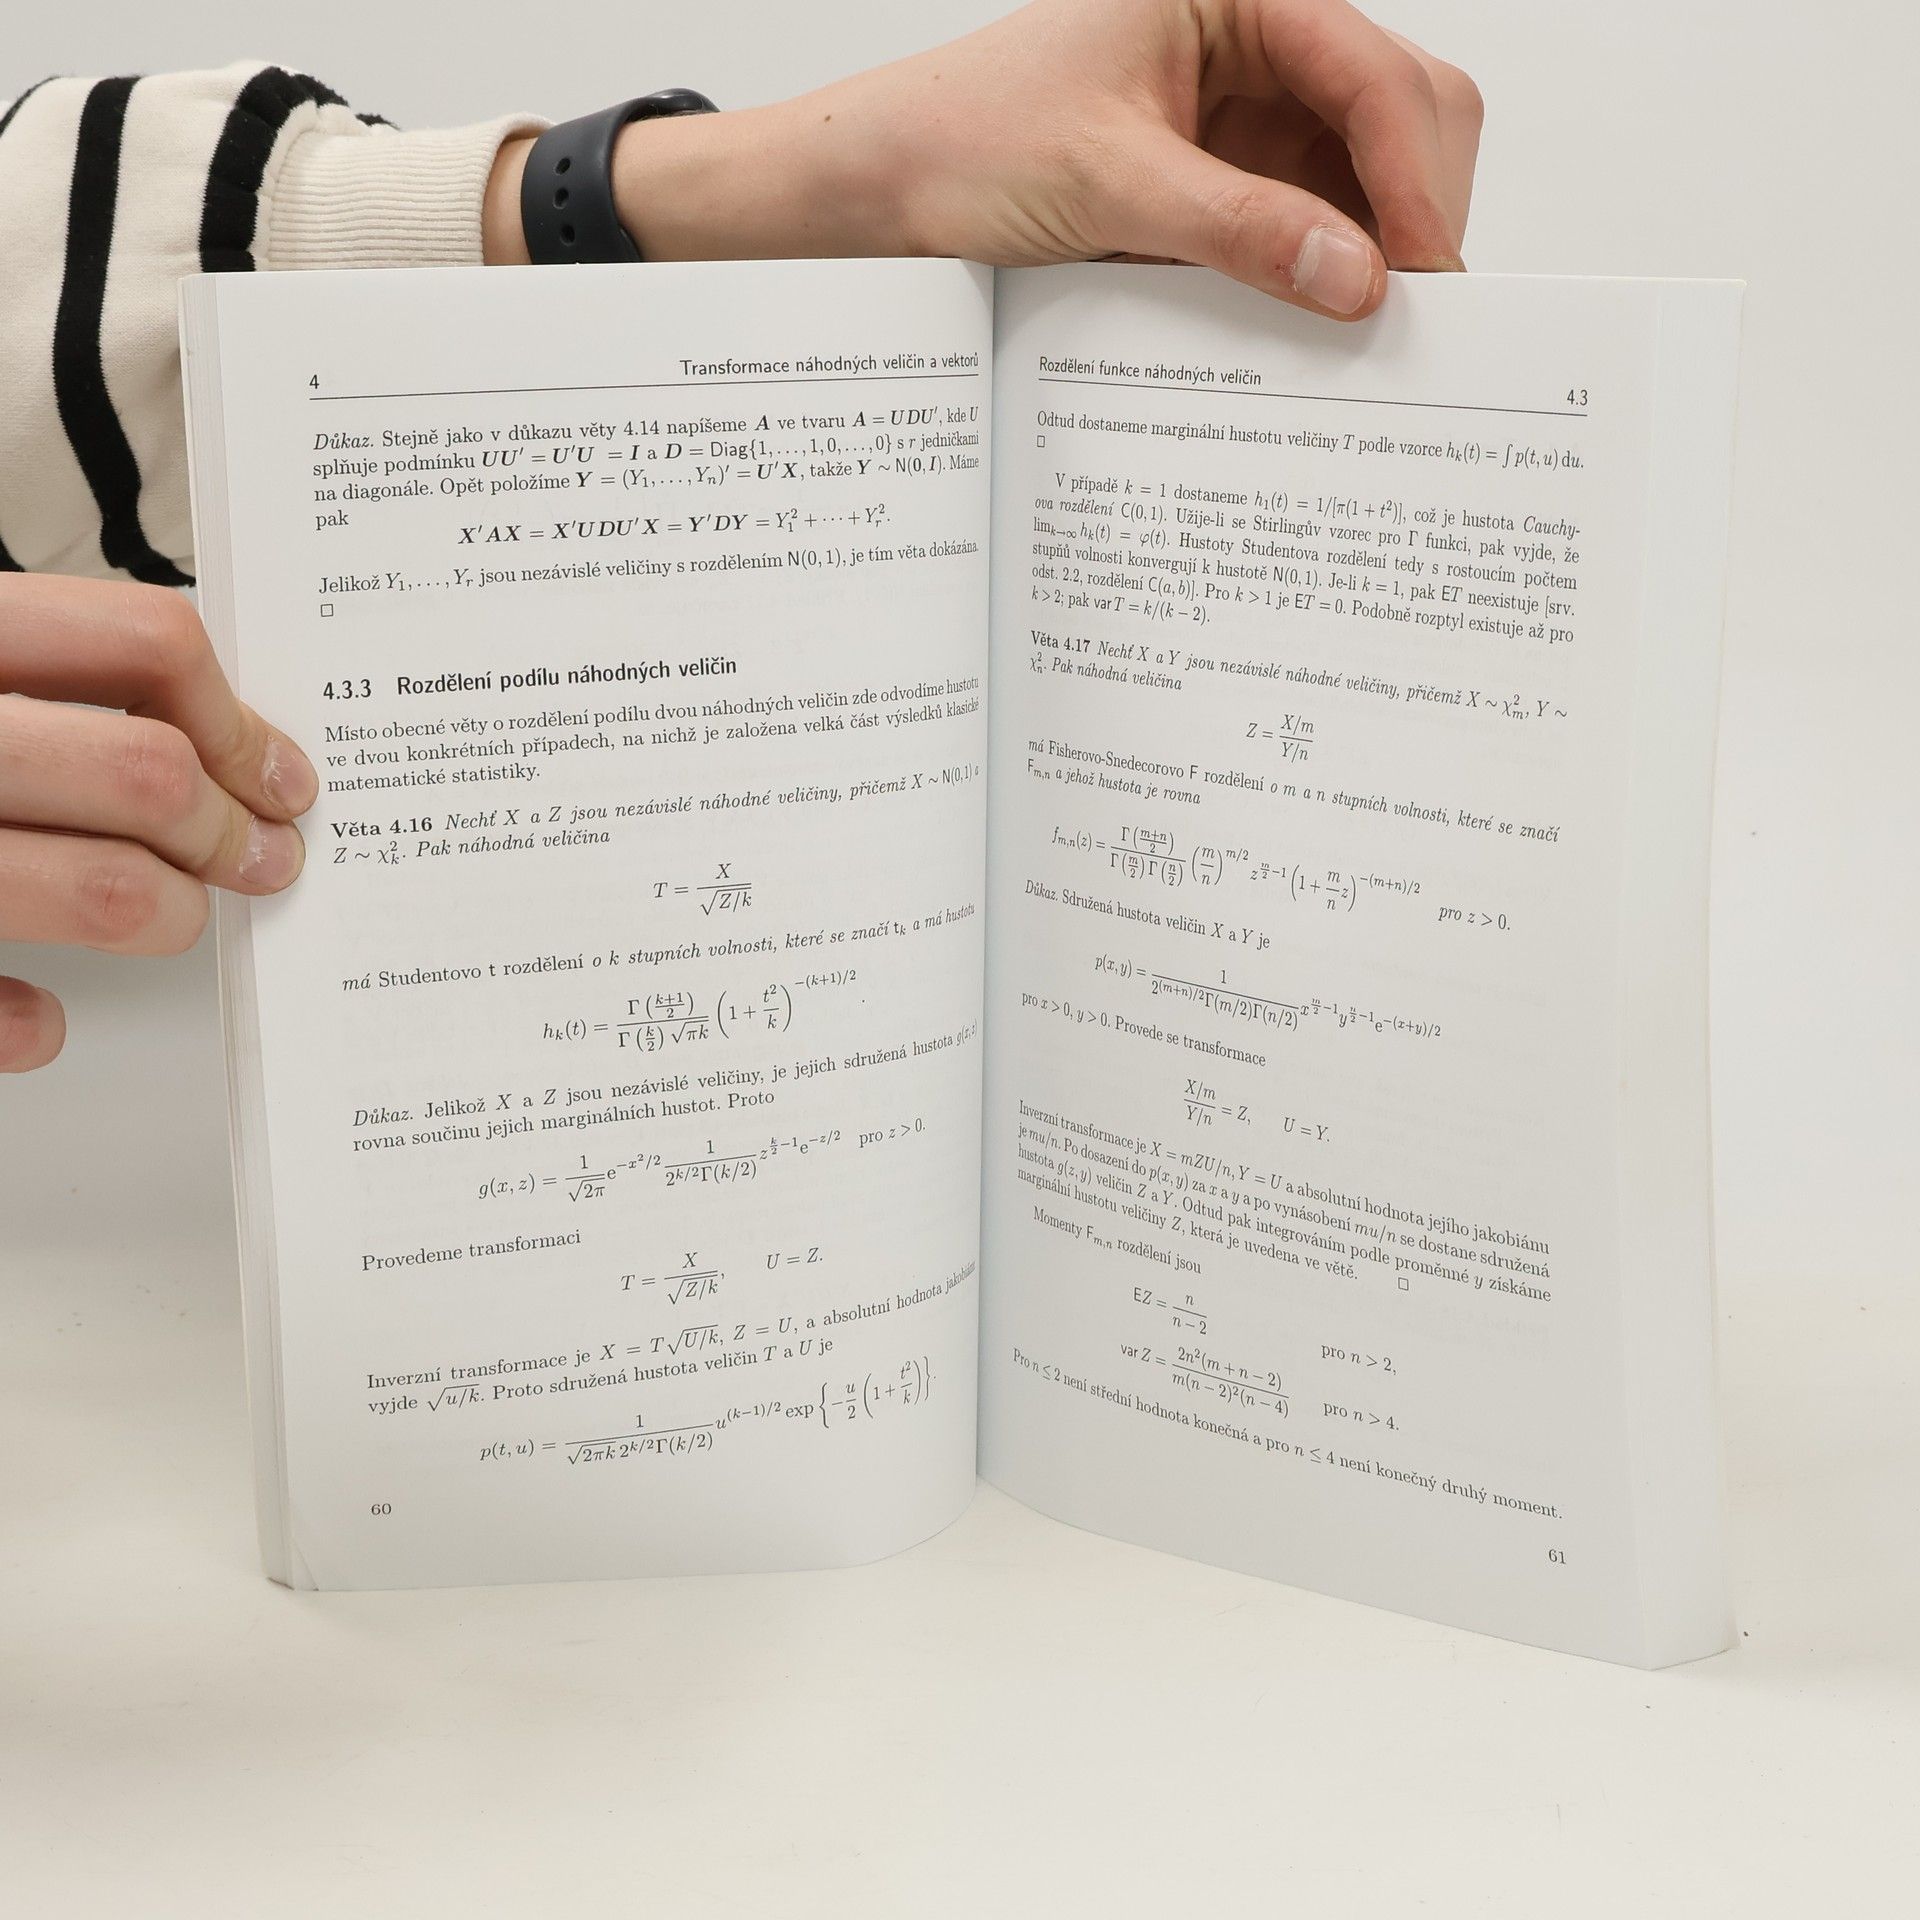 4 Transformace náhodných veličin a vektorů
Důkaz. Stejně jako v důkazu věty 4.14 napíšeme A ve tvaru A = UDU′, kde U
splňuje podmínku UU′ = U′U = I a D = Diag{1, . . . , 1, 0, . . . , 0} s r jedničkami
na diagonále. Opět položíme Y = (Y₁, . . . , Yₙ)′ = U′X, takže Y ∼ N(0, I). Máme
pak
X′AX = X′UDU′X = Y′DY = Y₁² + ··· + Yᵣ².
Jelikož Y₁, . . . , Yᵣ jsou nezávislé veličiny s rozdělením N(0, 1), je tím věta dokázána.
□
4.3.3 Rozdělení podílu náhodných veličin
Místo obecné věty o rozdělení podílu dvou náhodných veličin zde odvodíme hustotu
ve dvou konkrétních případech, na nichž je založena velká část výsledků klasické
matematické statistiky.
Věta 4.16 Nechť X a Z jsou nezávislé náhodné veličiny, přičemž X ∼ N(0, 1) a
Z ∼ χ²ₖ. Pak náhodná veličina
T = X / √(Z/k)
má Studentovo t rozdělení o k stupních volnosti, které se značí tₖ a má hustotu
hₖ(t) = Γ((k+1)/2) / (Γ(k/2) √(πk)) (1 + t²/k)^(−(k+1)/2).
Důkaz. Jelikož X a Z jsou nezávislé veličiny, je jejich sdružená hustota g(x, z)
rovna součinu jejich marginálních hustot. Proto
g(x, z) = 1/√(2π) e^(−x²/2) 1/(2^(k/2) Γ(k/2)) z^(k/2−1) e^(−z/2) pro z > 0.
Provedeme transformaci
T = X / √(Z/k), U = Z.
Inverzní transformace je X = T√(U/k), Z = U, a absolutní hodnota jakobiánu
vyjde √(u/k). Proto sdružená hustota veličin T a U je
p(t, u) = 1/(√(2πk) 2^(k/2) Γ(k/2)) u^((k−1)/2) exp{−u/2 (1 + t²/k)}.
60
Rozdělení funkce náhodných veličin 4.3
Odtud dostaneme marginální hustotu veličiny T podle vzorce hₖ(t) = ∫ p(t, u) du.
□
V případě k = 1 dostaneme h₁(t) = 1/[π(1 + t²)], což je hustota Cauchy-
ova rozdělení C(0, 1). Užije-li se Stirlingův vzorec pro Γ funkci, pak vyjde, že
lim_(k→∞) hₖ(t) = φ(t). Hustoty Studentova rozdělení tedy s rostoucím počtem
stupňů volnosti konvergují k hustotě N(0, 1). Je-li k = 1, pak ET neexistuje [srv.
odst. 2.2, rozdělení C(a, b)]. Pro k > 1 je ET = 0. Podobně rozptyl existuje až pro
k > 2; pak var T = k/(k − 2).
Věta 4.17 Nechť X a Y jsou nezávislé náhodné veličiny, přičemž X ∼ χ²ₘ, Y ∼
χ²ₙ. Pak náhodná veličina
Z = (X/m) / (Y/n)
má Fisherovo-Snedecorovo F rozdělení o m a n stupních volnosti, které se značí
Fₘ,ₙ a jehož hustota je rovna
fₘ,ₙ(z) = Γ((m+n)/2) / (Γ(m/2) Γ(n/2)) (m/n)^(m/2) z^(m/2−1) (1 + m/n z)^(−(m+n)/2) pro z > 0.
Důkaz. Sdružená hustota veličin X a Y je
p(x, y) = 1/(2^((m+n)/2) Γ(m/2)Γ(n/2)) x^(m/2−1) y^(n/2−1) e^(−(x+y)/2)
pro x > 0, y > 0. Provede se transformace
(X/m) / (Y/n) = Z, U = Y.
Inverzní transformace je X = mZU/n, Y = U a absolutní hodnota jejího jakobiánu
je mu/n. Po dosazení do p(x, y) za x a y a po vynásobení mu/n se dostane sdružená
hustota g(z, y) veličin Z a Y. Odtud pak integrováním podle proměnné y získáme
marginální hustotu veličiny Z, která je uvedena ve větě. □
Momenty Fₘ,ₙ rozdělení jsou
EZ = n / (n − 2) pro n > 2,
var Z = 2n²(m + n − 2) / (m(n − 2)²(n − 4)) pro n > 4.
Pro n ≤ 2 není střední hodnota konečná a pro n ≤ 4 není konečný druhý moment.
61